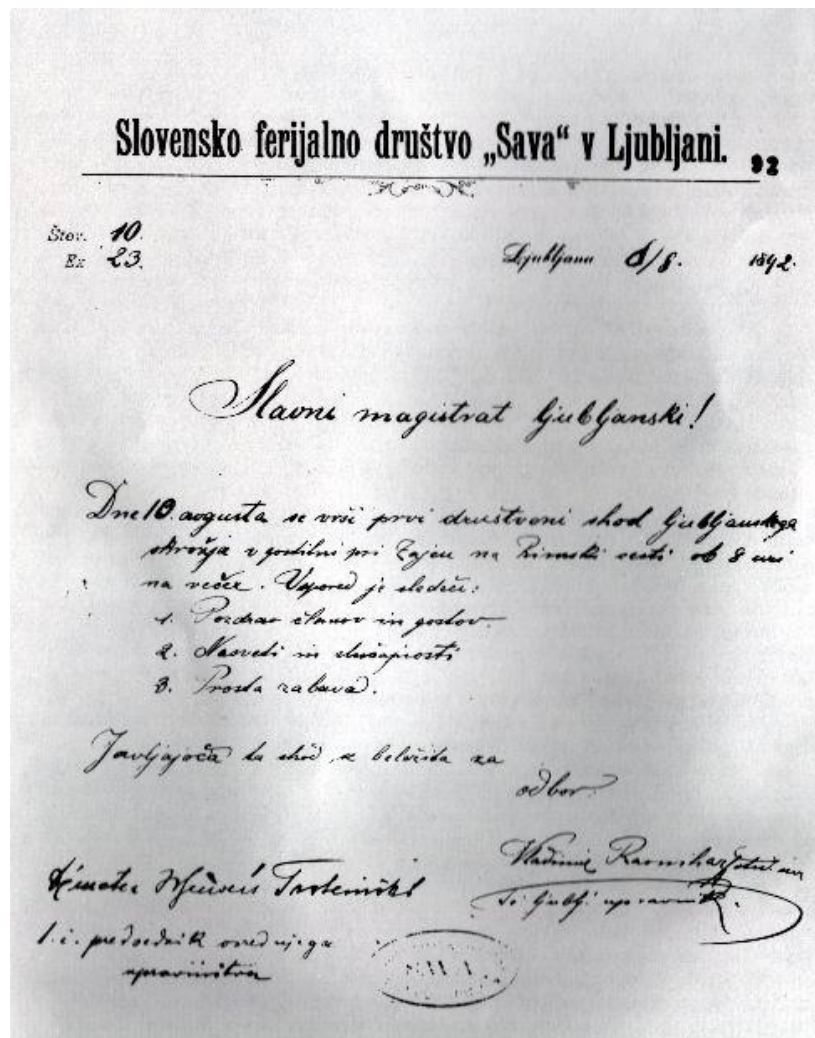 Slovensko ferijalno društvo „Sava“ v Ljubljani.
92
Štev. 10.
Ex 23.
Ljubljana 8/8. 1892.
Slavni magistrat ljubljanski!
Dne 10. avgusta se vrši prvi društveni shod ljubljanskega
okrožja v gostilni pri Zajcu na Rimski cesti ob 8 uri
na večer. Vspored je sledeči:
1. Pozdrav članov in gostov.
2. Nasveti in slučajnosti
3. Prosta zabava.
Javljajoča ta shod se beležita za
odbor
Vladimir Ravnihar
ljublj. upravnik.
t. i. predsednik osrednjega
upravništva